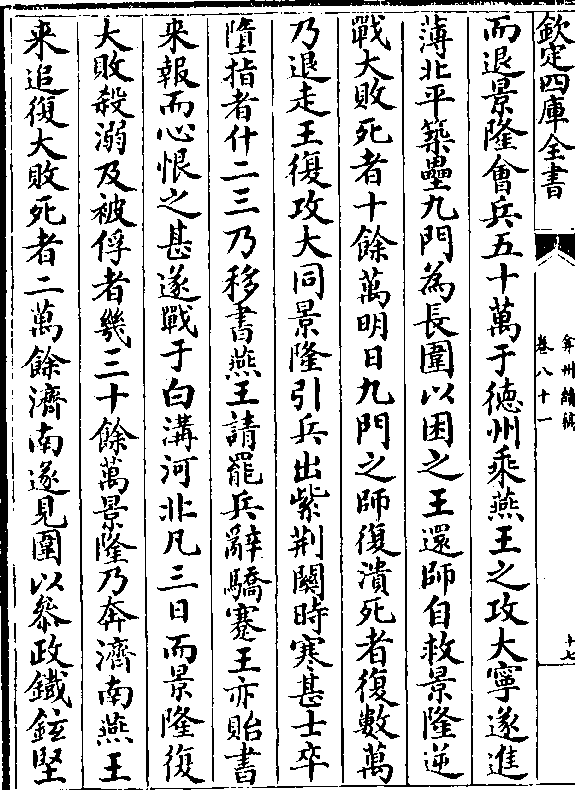 欽定四庫全書
弇州續稿
卷八十一
十七
而退景隆會兵五十萬于德州乘燕王之攻大寧遂進
薄北平築壘九門為長圍以困之王還師自救景隆逆
戰大敗死者十餘萬明日九門之師復潰死者復數萬
乃退走王復攻大同景隆引兵出紫荆關時寒甚士卒
墮指者什二三乃移書燕王請罷兵辭驕蹇王亦貽書
来報而心恨之甚遂戰于白溝河北凡三日而景隆復
大敗殺溺及被俘者幾三十餘萬景隆乃奔濟南燕王
来追復大敗死者二萬餘濟南遂見圍以叅政鐵鉉堅